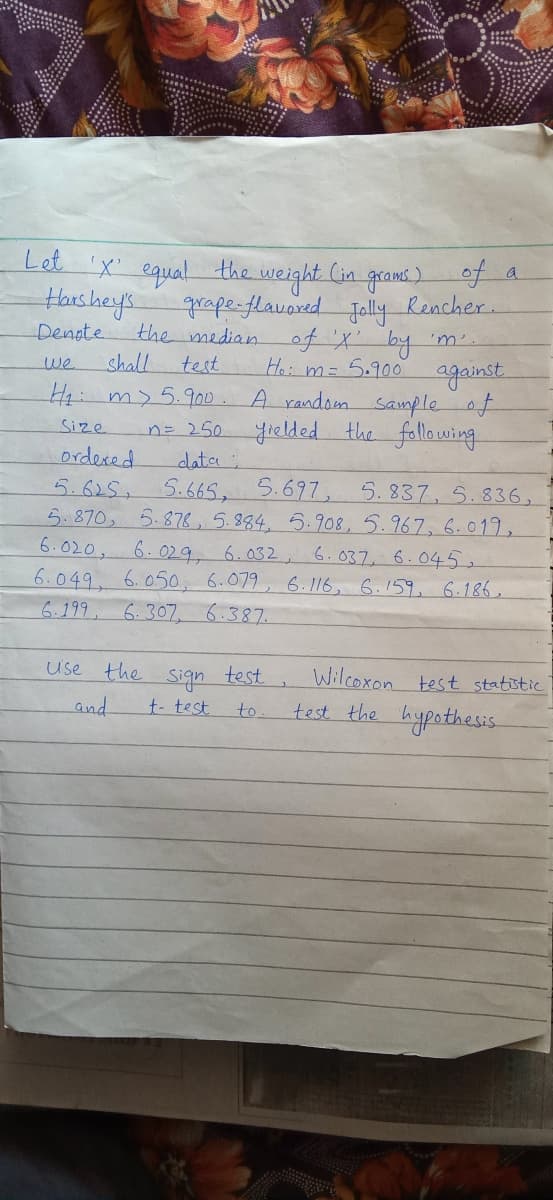 Let 'X' equal the weight (in grams) of a
Harshey's grape-flavored Jolly Rencher.
Denote the median of 'X' by 'm'.
we shall test H₀: m = 5.900 against
H₁: m > 5.900. A random sample of
size n = 250 yielded the following
ordered data :
5.625, 5.665, 5.697, 5.837, 5.836,
5.870, 5.878, 5.884, 5.908, 5.967, 6.019,
6.020, 6.029, 6.032, 6.037, 6.045,
6.049, 6.050, 6.079, 6.116, 6.159, 6.186,
6.199, 6.307, 6.387.
use the sign test, Wilcoxon test statistic
and t-test to test the hypothesis